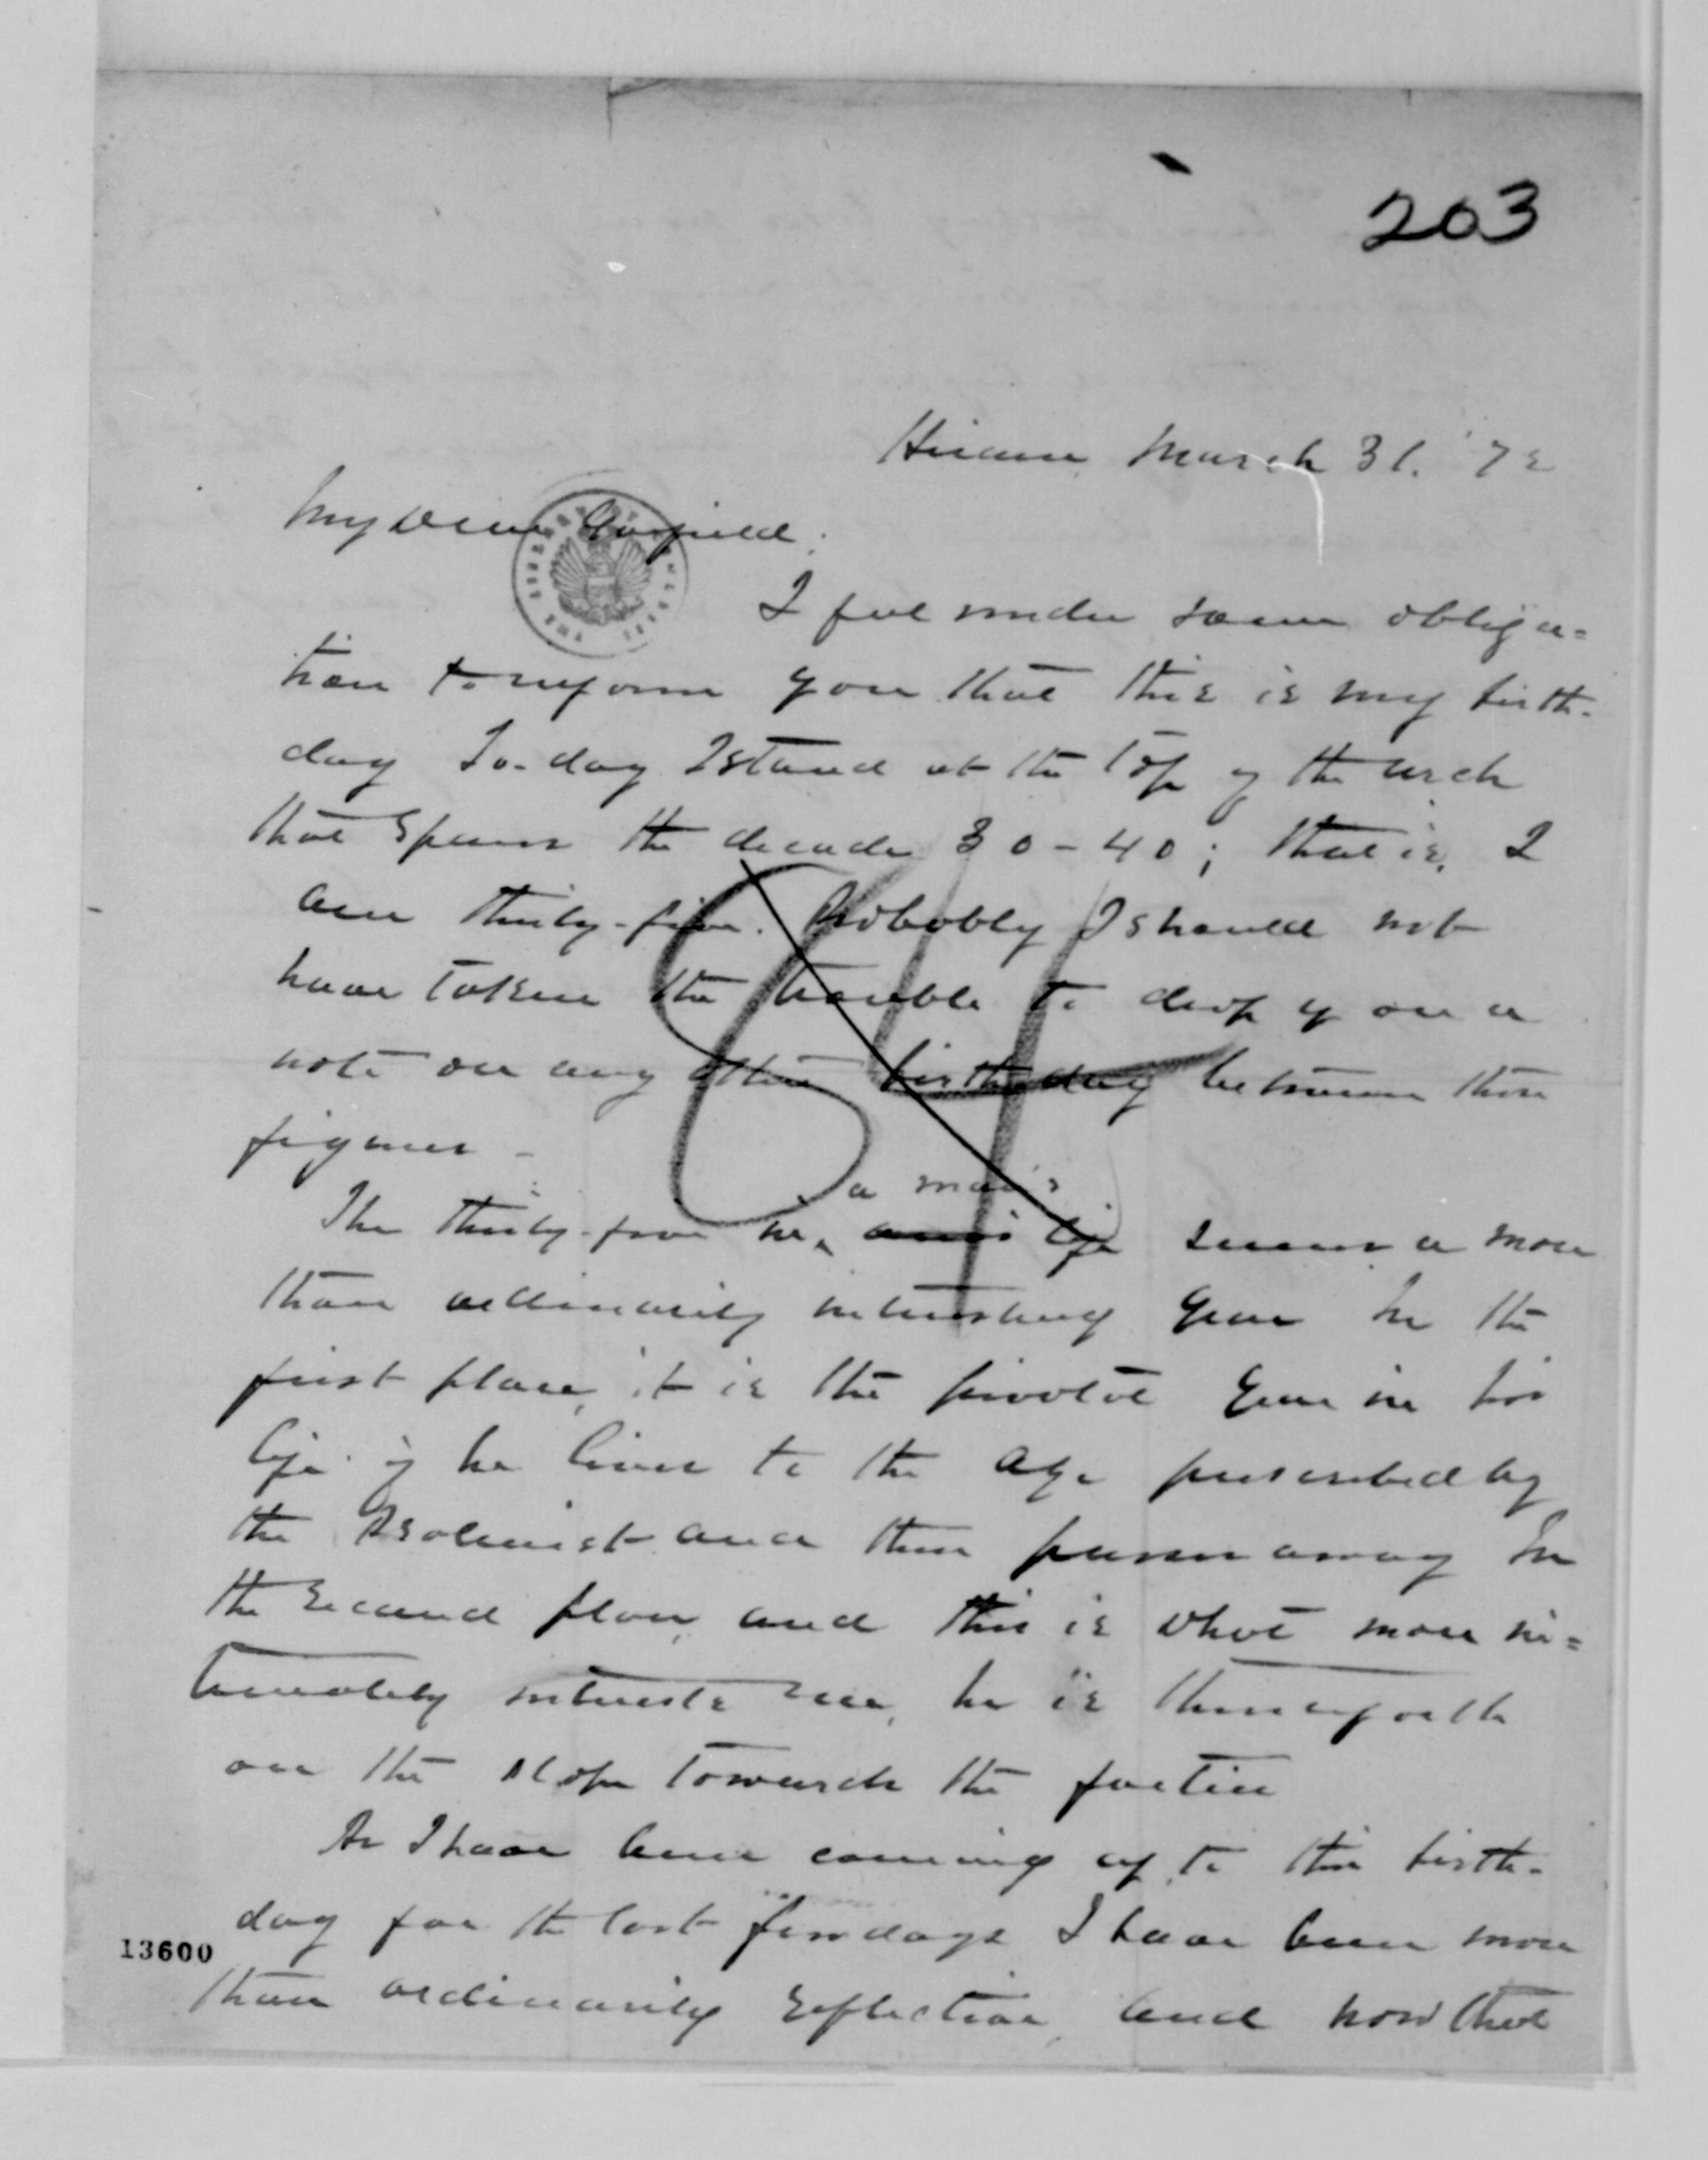 203
Hiram March 31. '72
My Dear Garfield.
I feel under some obliga=
tion to inform you that this is my birth-
day To-day I stand at the top of the arch
that spans the decade 30-40; that is, I
am thirty-five. Probably I should not
have taken the trouble to drop you a
note on any other birthday between those
figures -
a man's
The thirty-five in life seems a more
than ordinarily interesting year In the
first place, it is the pivotal year in his
life if he lives to the age prescribed by
the Psalmist and then passes away In
the second place, and this is what more in=
timately interests me, he is thenceforth
on the slope towards the forties
As I have been coming up to this birth-
day for the last few days I have been more
than ordinarily reflective, and now that
13600
84